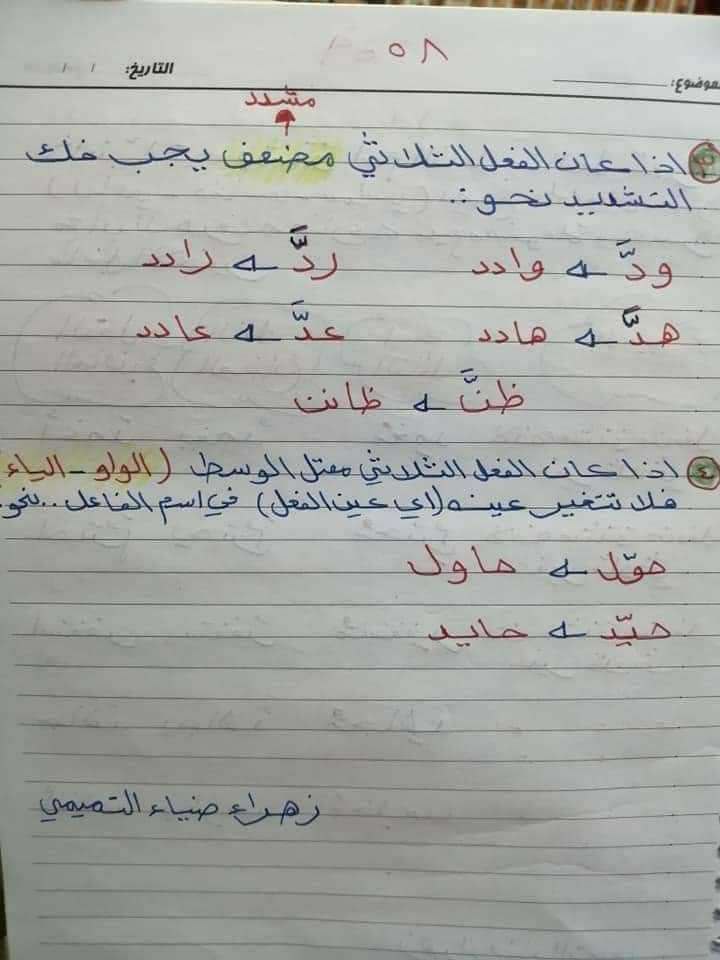 ٥٨
الموضوع: التاريخ: / /
مشدد
٣ اذا كان الفعل الثلاثي مضعف يجب فك
التشديد نحو :.
ودَّ ← وادد ردَّ ← رادد
هدَّ ← هادد عدَّ ← عادد
ظنَّ ← ظانن
٤ اذا كان الفعل الثلاثي معتل الوسط (الواو - الياء
فلا تتغير عينه (اي عين الفعل) في اسم الفاعل .. نحو
حوّل ← حاول
حيّد ← حايد
زهراء ضياء التميمي